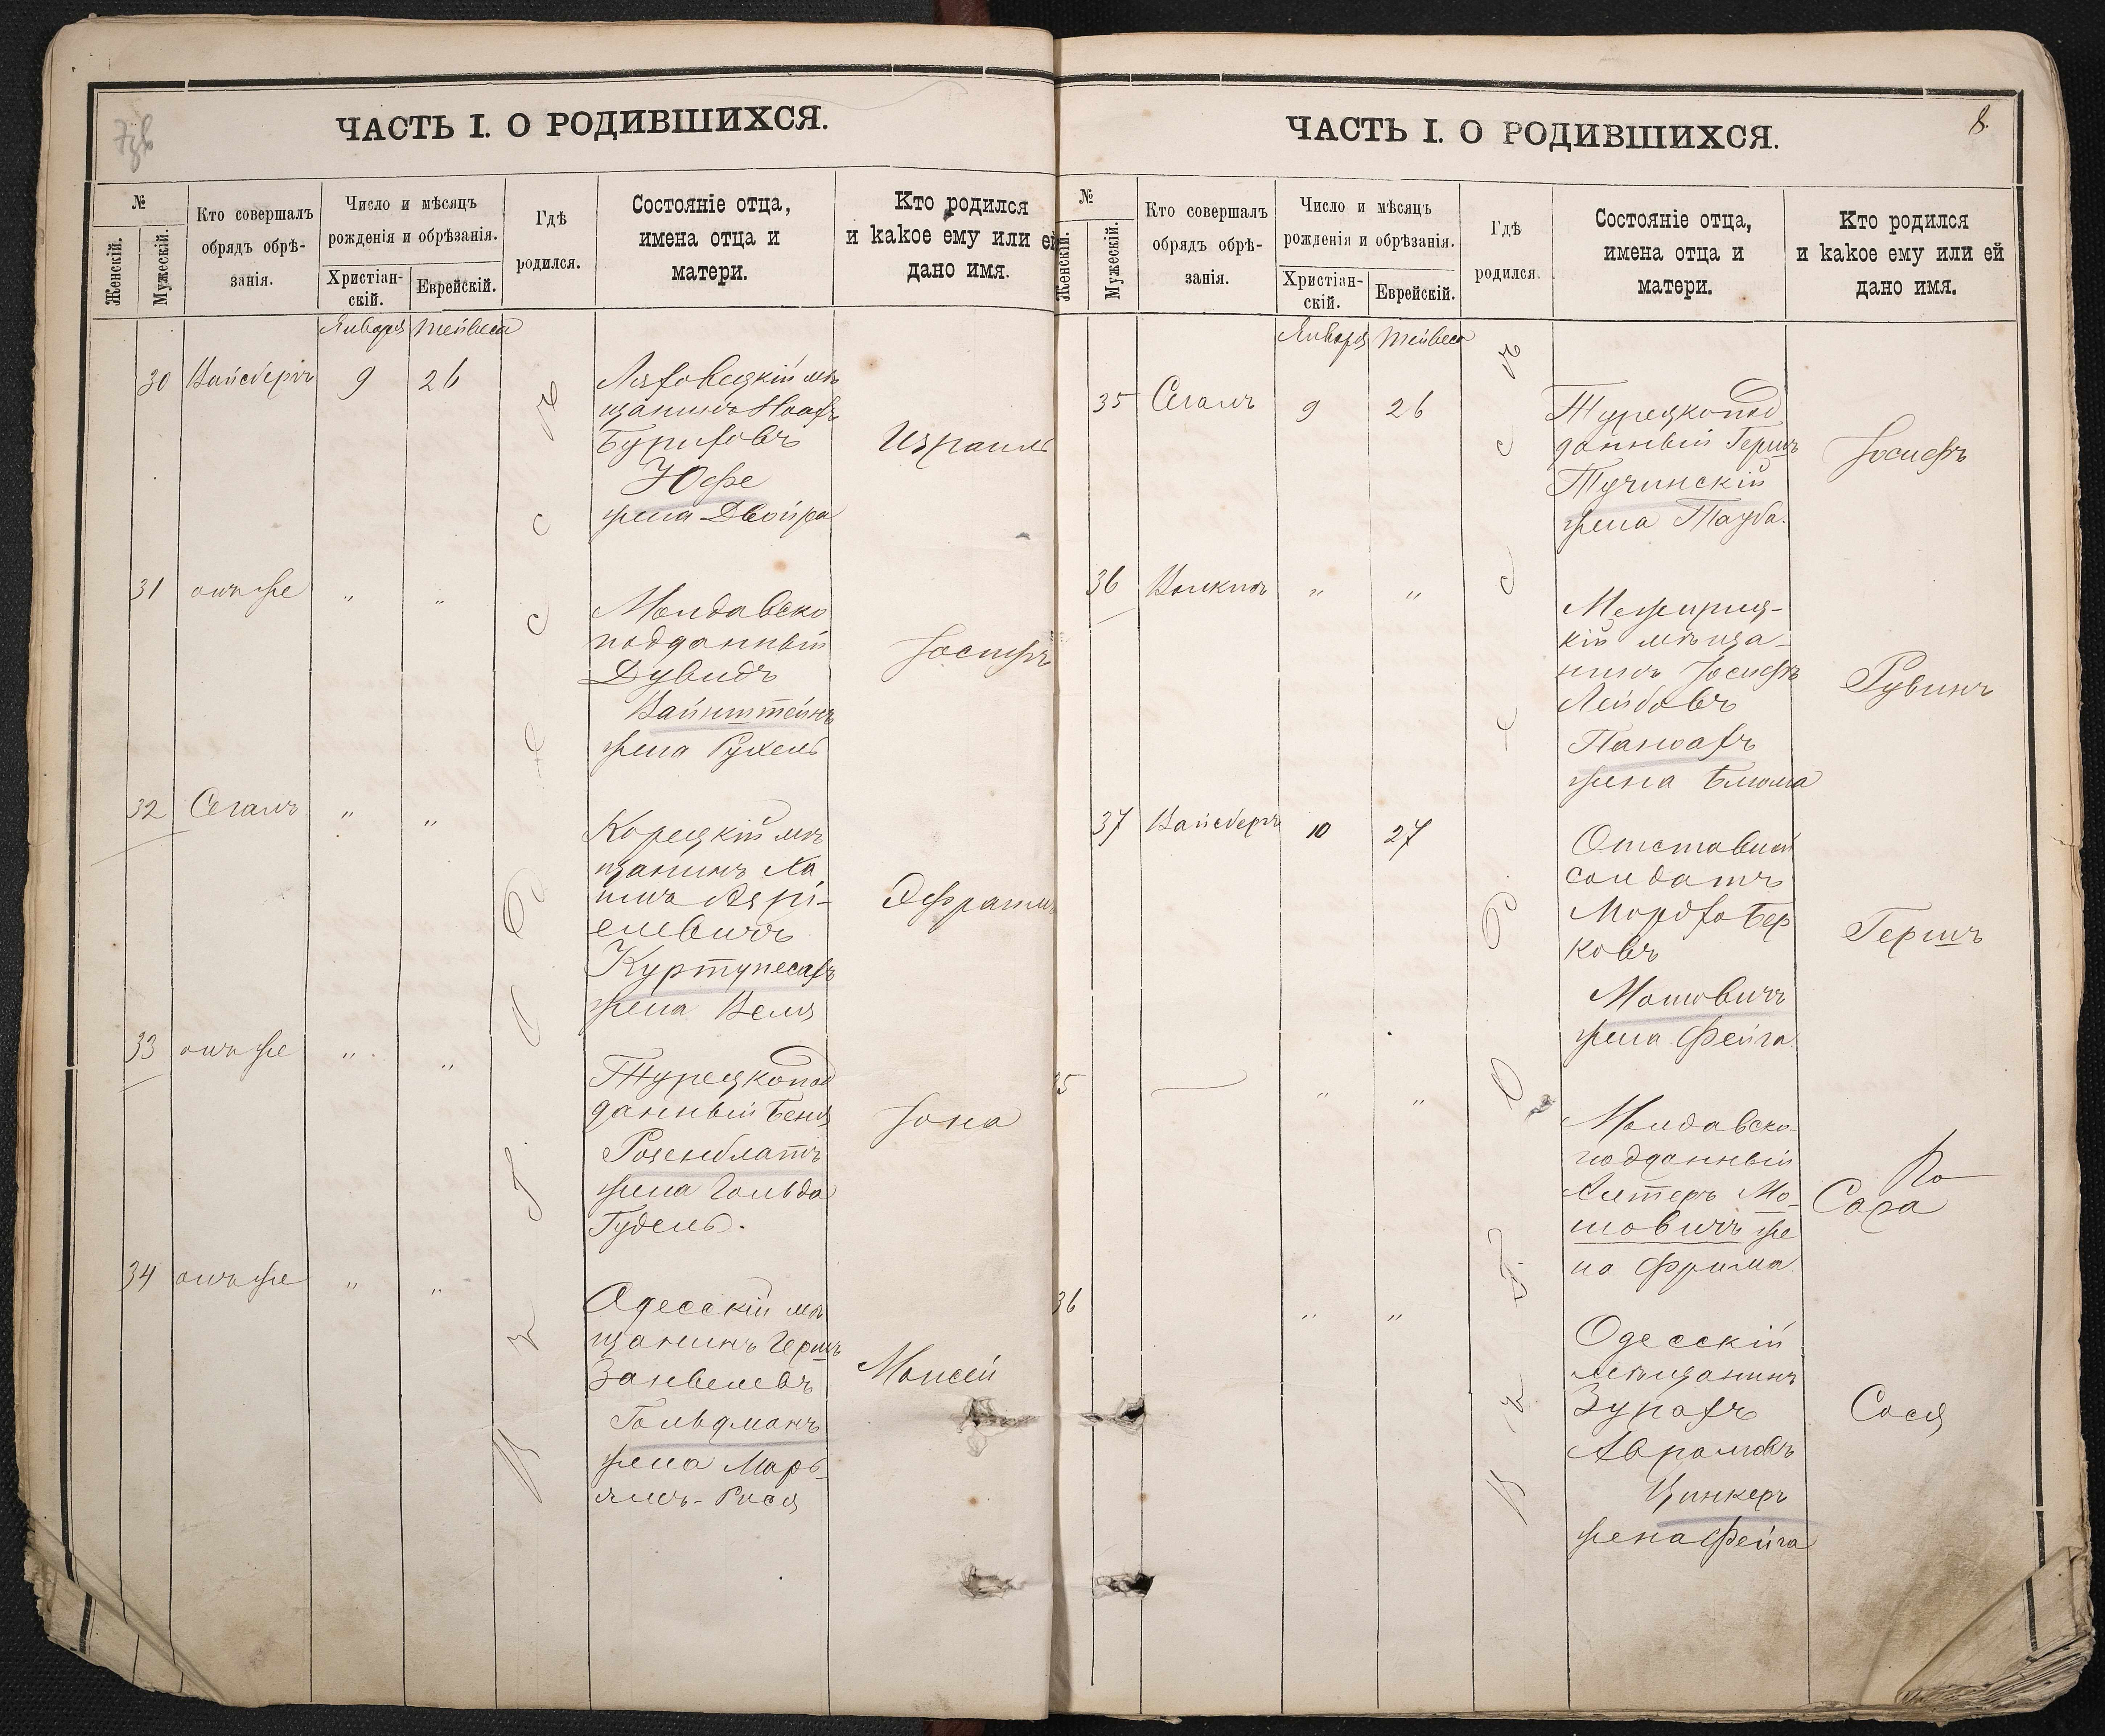 ЧАСТЬ I. О РОДИВШИХСЯ.
№
Женскій.
Мужескій.
Кто совершалъ
обрядъ обрѣ-
занія.
Число и мѣсяцъ
рожденія и обрѣзанія.
Христіан-
скій.
Еврейскій.
Гдѣ
родился.
Состояніе отца,
имена отца и
матери.
Кто родился
и какое ему или ей
дано имя.
Января Тейвеса
30 Вайсбергъ 9 26
Ляховецкій мѣ
щанинъ
Юфе
жена Двойра
Израиль
31 онъ же " "
Молдавско
подданный
Дувидъ
Вайнштейнъ
жена Рухель
Іосифъ
32 Сегалъ " "
Корецкій мѣ
щанинъ Ха
жена Веля
Эфраимъ
33 онъ же " "
Турецкопод
данный Беня
Розенблатъ
жена Гольда
Гудель.
Іона
34 онъ же " "
Одесскій мѣ
щанинъ Гершъ
Занвелевъ
Гольдманъ
жена Марь-
ямъ-Рися
Моисей
ЧАСТЬ I. О РОДИВШИХСЯ.
8.
№
Женскій.
Мужескій.
Кто совершалъ
обрядъ обрѣ-
занія.
Число и мѣсяцъ
рожденія и обрѣзанія.
Христіан-
скій.
Еврейскій.
Гдѣ
родился.
Состояніе отца,
имена отца и
матери.
Кто родился
и какое ему или ей
дано имя.
Января Тейвеса
35 Сегалъ 9 26
Турецкопод
данный Гершъ
Тучинскій
жена Тауба.
Іосифъ
36 " "
Межириц-
кій мѣща-
нинъ Іосифъ
Лейбовъ
жена Блюма
Рувинъ
37 Вайсбергъ 10 27
Отставной
солдатъ
Мордхо Бер
ковъ
Мошовичъ
жена Фейга
Гершъ
35 — " "
Молдавско-
подданный
Алтеръ Мо-
шовичъ же
на Фрима
Сара
36 " "
Одесскій
мѣщанинъ
Зурахъ
Аврамовъ
Цинкеръ
жена Фейга
Сося